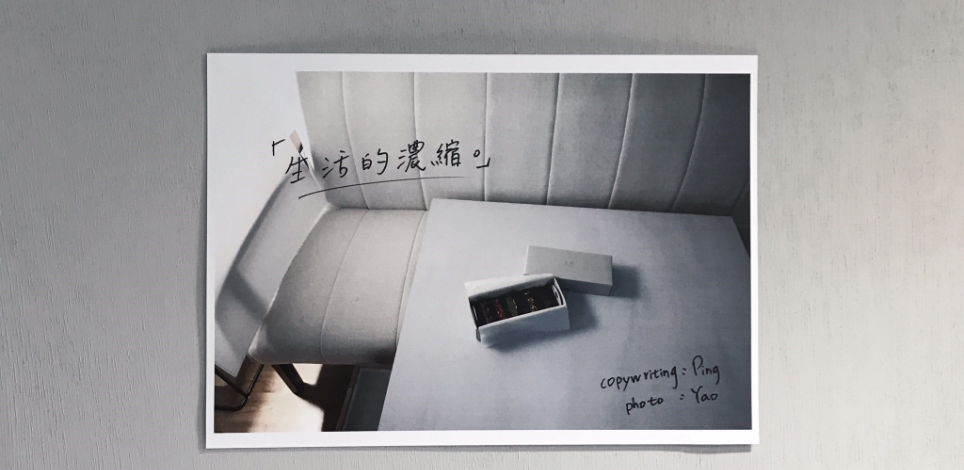 「生活的濃縮。」
copywriting : Ping
photo : Yao